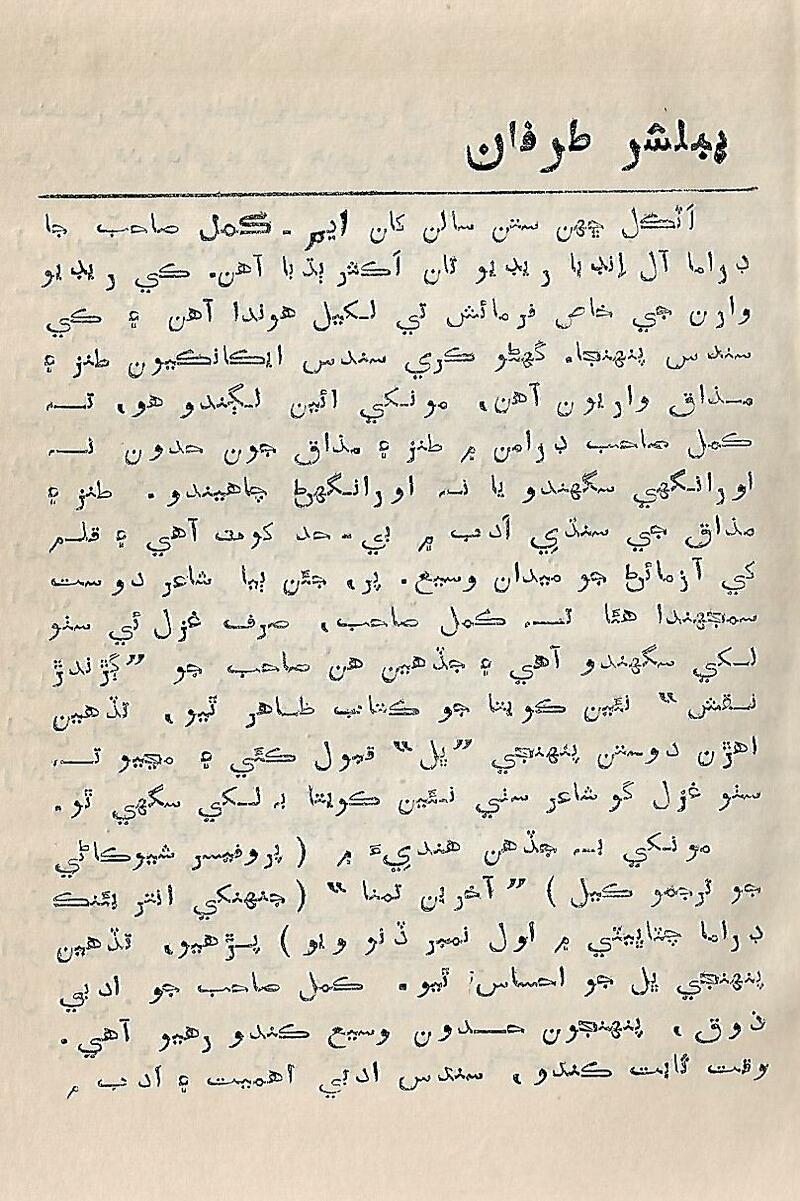 پبلشر طرفان
اَٽڪل ڇهن ستن سالن کان ايم ـ ڪمل صاحب جا
ڊراما آل اِنڊيا ريڊيو تان اَڪثر ٻڌبا آهن. ڪي ريڊيو
وارن جي خاص فرمائش تي لکيل هوندا آهن ۽ ڪي
سندس پنهنجا. گهڻو ڪري سندس ايڪانڪيون طنز ۽
مذاق واريون آهن، مونکي ائين لڳندو هو، تہ
ڪمل صاحب ڊرامن ۾ طنز ۽ مذاق جون حدون نہ
اورانگهي سگهندو يا نہ اورانگهڻ چاهيندو. طنز ۽
مذاق جي سنڌي اَدب ۾ بي-حد کوٽ آهي ۽ قلم
کي آزمائڻ جو ميدان وسيع. پر، جئن ٻيا شاعر دوست
سمجهندا هئا تہ ڪمل صاحب، صرف غزل ئي سٺو
لکي سگهندو آهي ۽ جڏهين هن صاحب جو ”ڳڙندڙ
نقش“ نئين ڪويتا جو ڪتاب ظاهر ٿيو، تڏهين
اهڙن دوستن پنهنجي ”ڀل“ قبول ڪئي ۽ مڃيو تہ
سٺو غزل گو شاعر سٺي نئين ڪويتا بہ لکي سگهي ٿو.
مونکي بہ جڏهن هنديءَ ۾ ( پروفيسر شيوڪاڻي
جو ترجمو ڪيل ) ”آخرين تمنا“ (جنهنکي انتر بئنڪ
ڊراما چٽاڀيٽي ۾ اول نمبر ڏنو ويو) پڙهيو، تڏهين
پنهنجي ڀل جو احساس ٿيو. ڪمل صاحب جو ادبي
ذوق، پنهنجون حدون وسيع ڪندو رهيو آهي.
وقت ثابت ڪندو، سندس ادبي اهميت ۽ اَدب ۾